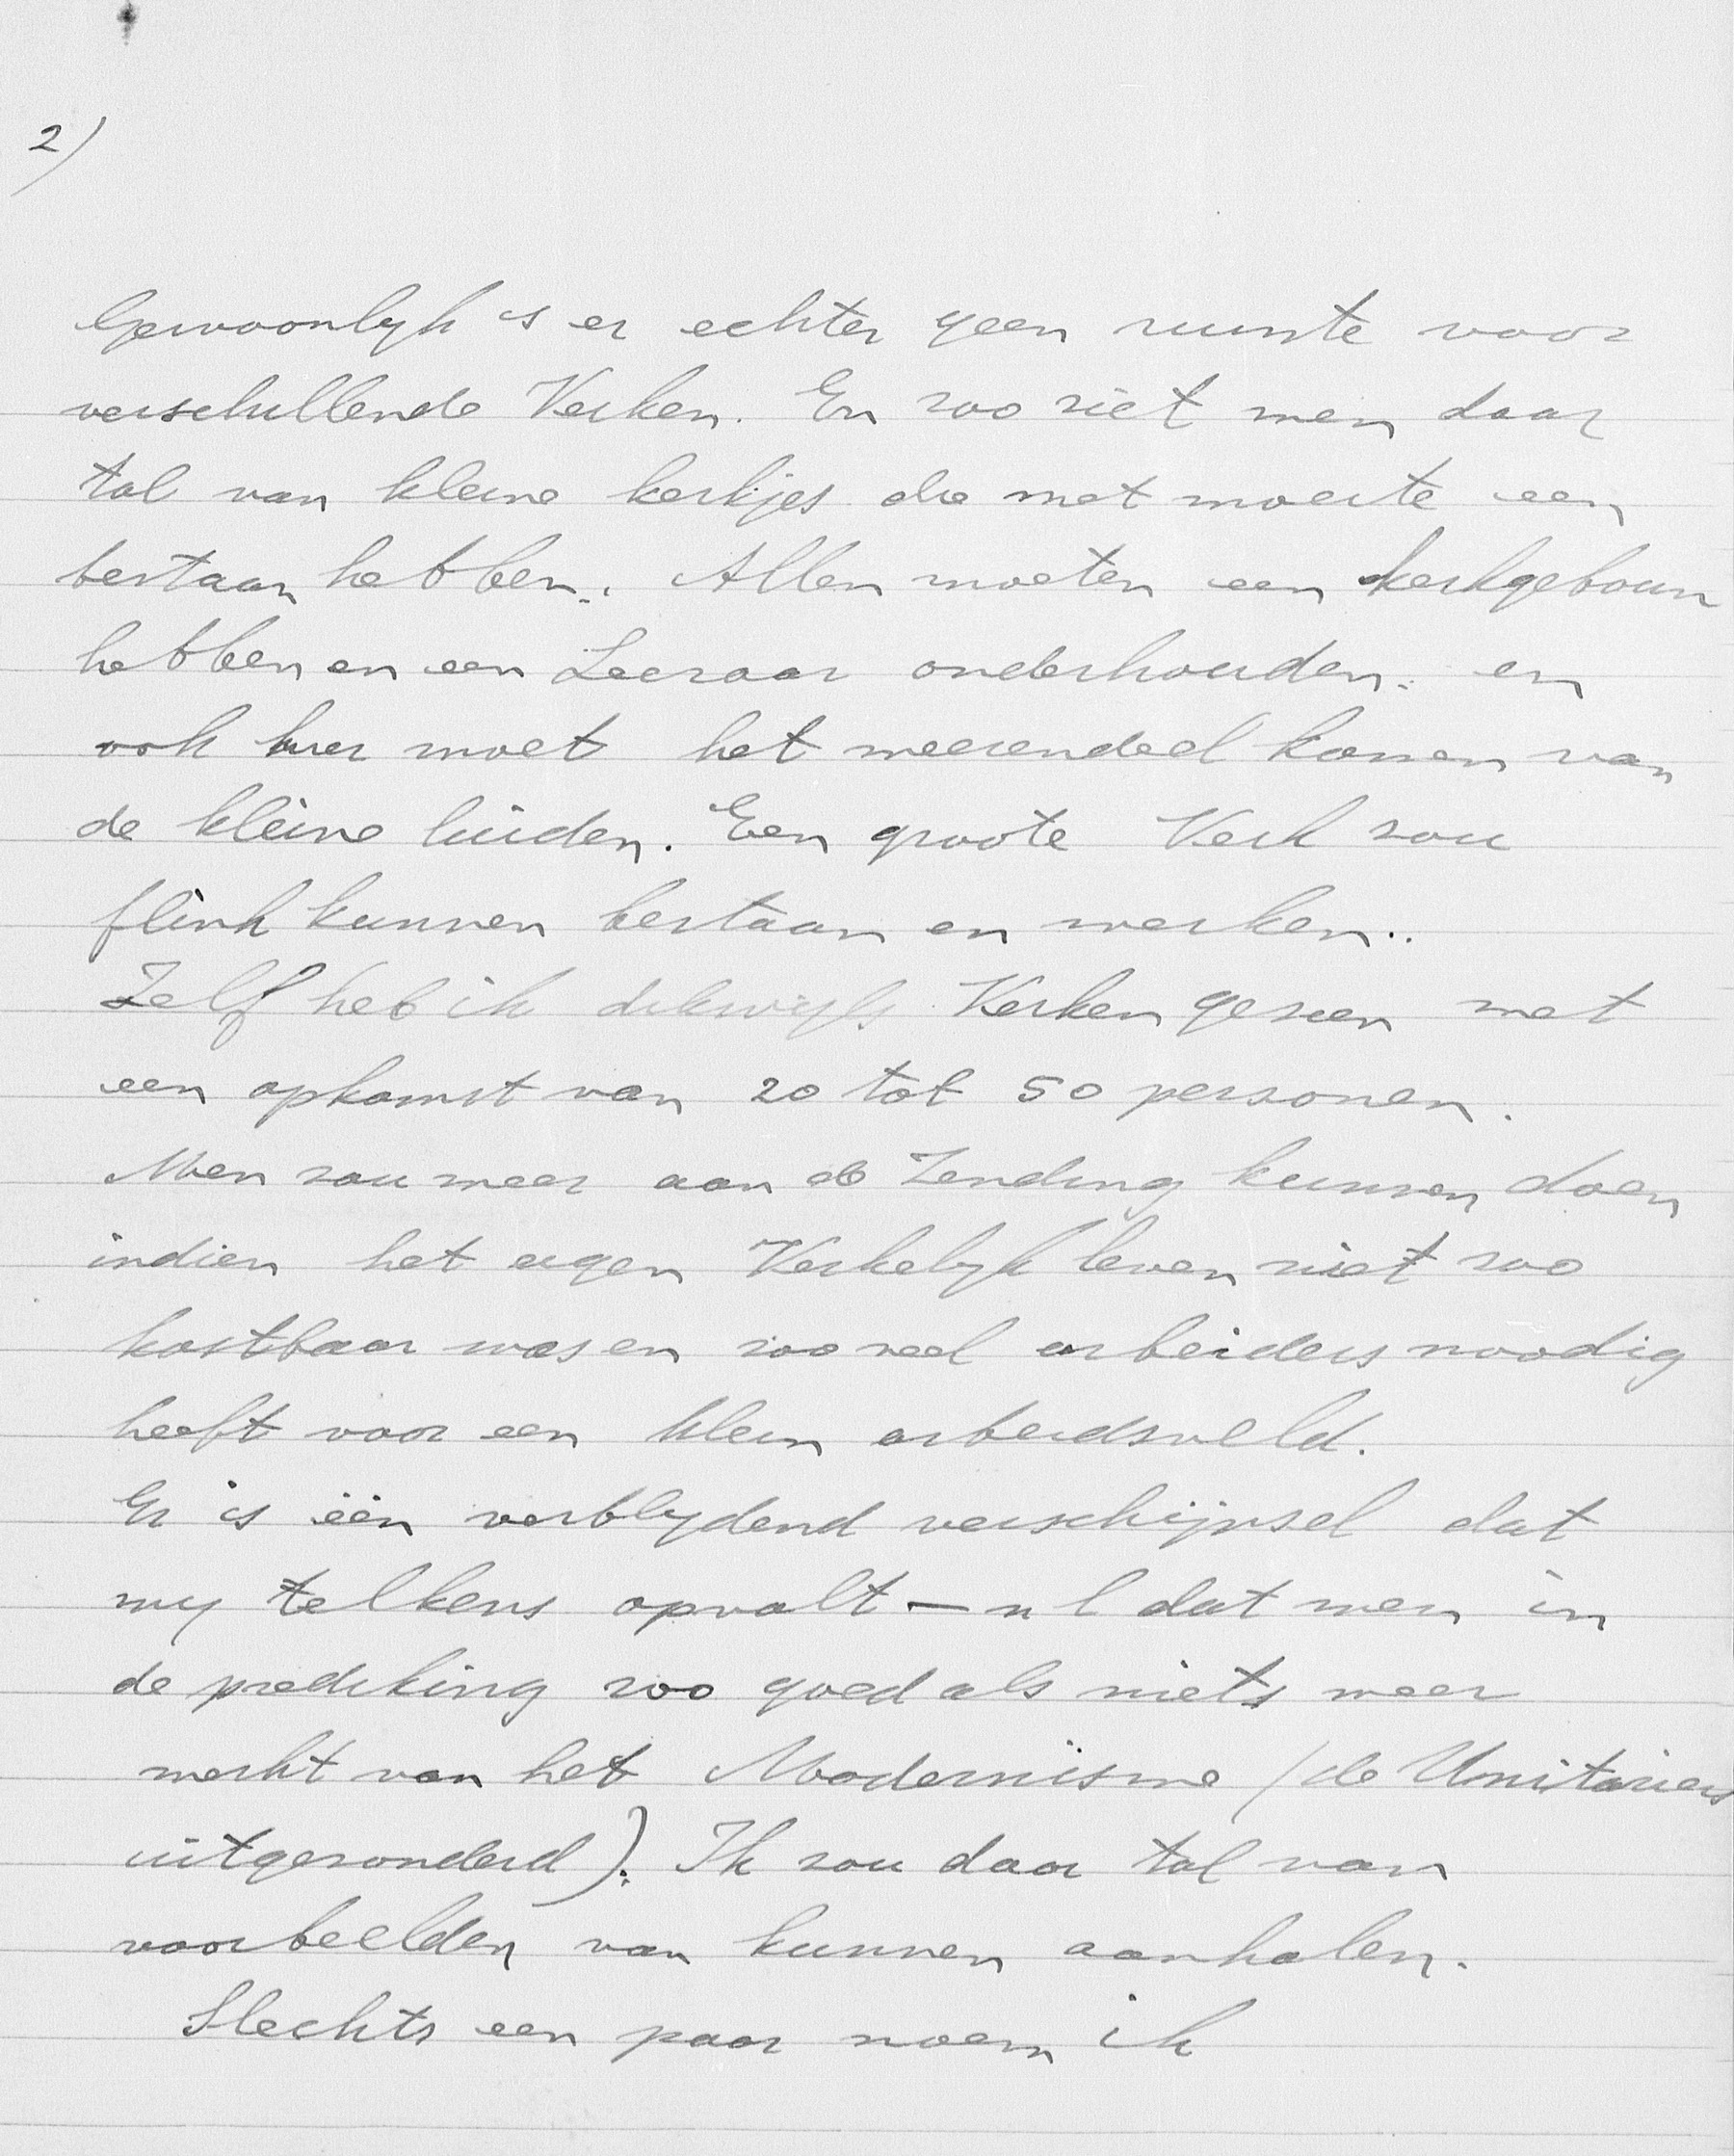 2)
Gewoonlyk is er echter geen ruimte voor
verschillende Kerken. En zoo ziet men daar
tal van kleine kerkjes die met moeite een
bestaan hebben. Allen moeten een kerkgebouw
hebben en een Leeraar onderhouden. en
ook hier moet het meerendeel komen van
de kleine luiden. Een groote Kerk zou
flink kunnen bestaan en werken..
Zelf heb ik dikwyls Kerken gezien met
een opkomst van 20 tot 50 personen.
Men zou meer aan de Zending kunnen doen
indien het eigen Kerkelyk leven niet zoo
kostbaar was en zoo veel arbeiders noodig
heeft voor een klein arbeidsveld.
Er is één verblydend verschijnsel dat
my telkens opvalt — n l dat men in
de prediking zoo goed als niets meer
merkt van het Modernisme (de Unitariers
uitgezonderd). Ik zou daar tal van
voorbeelden van kunnen aanhalen.
Slechts een paar noem ik